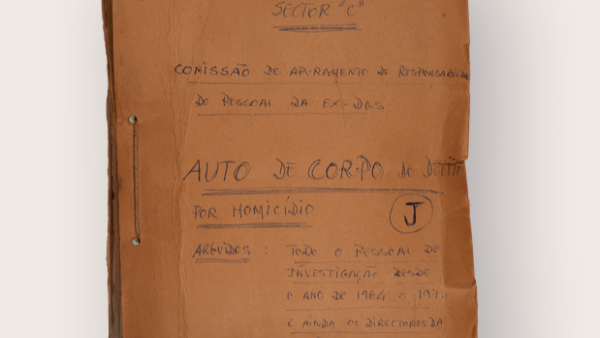 SECTOR "C"
COMISSÃO DE APURAMENTO DE RESPONSABILIDA
DO PESSOAL DA EX-DGS
AUTO DE CORPO DE DELIT
POR HOMICÍDIO
J
ARGUIDOS : TODO O PESSOAL DE
INVESTIGAÇÃO DESDE
O ANO DE 1964 a 1974
E AINDA OS DIRECTORES DA